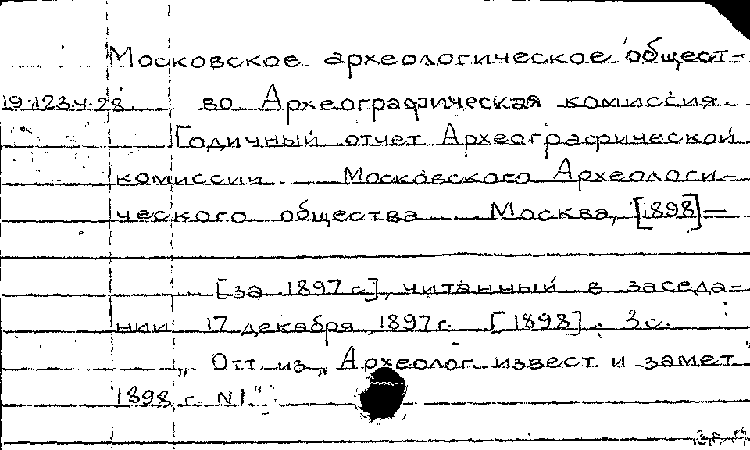 Московское археологическое общест-
19.123.4.28. во Археографическая комиссия.
Годичный отчет Археографической
комиссии Московского Археологи-
ческого общества Москва, [1898]-
[за 1897 г.], читанный в заседа-
нии 17 декабря 1897 г. [1898]. 3 с.
„Отт. из „Археолог. извест и замет"
1898 г. N1."